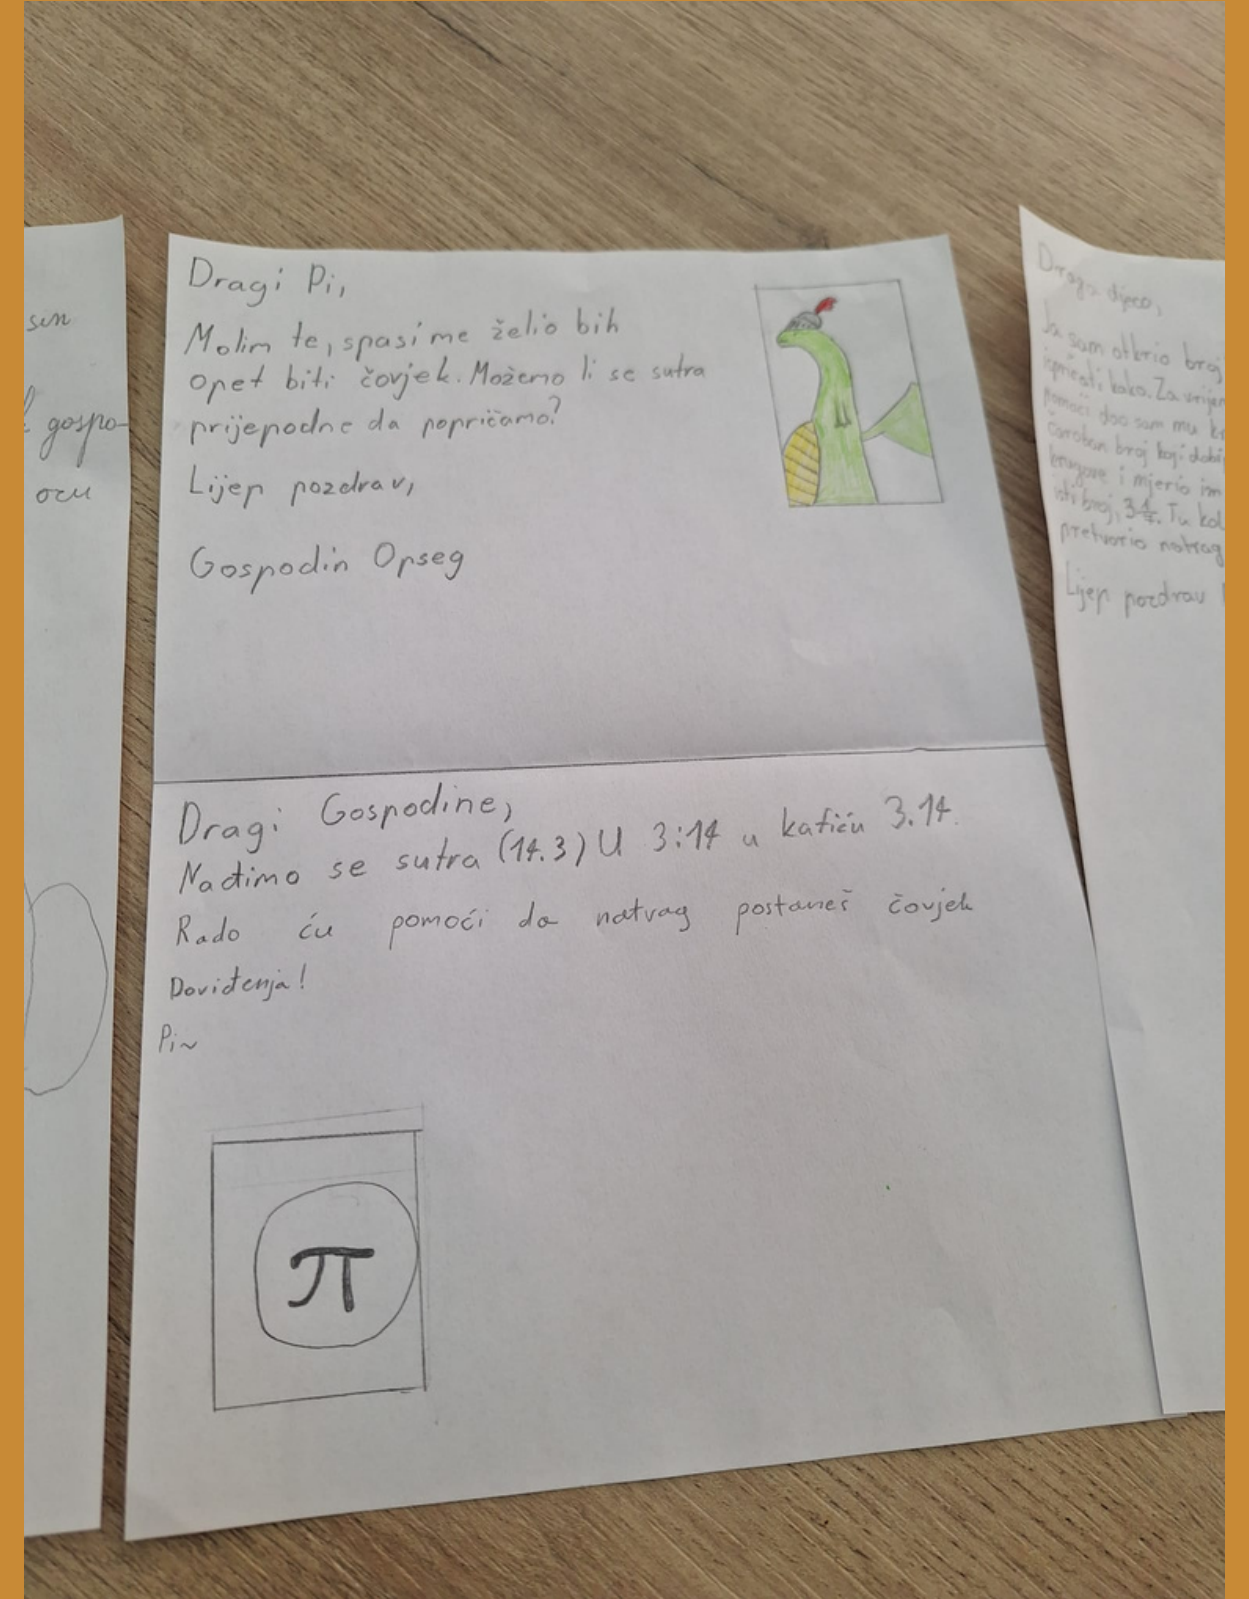 sin
gospo-
ocu
Dragi Pi,
Molim te, spasi me želio bih
opet biti čovjek. Možemo li se sutra
prijepodne da popričamo?
Lijep pozdrav,
Gospodin Opseg
Dragi Gospodine,
Nađimo se sutra (14.3) U 3:14 u kafiću 3.14.
Rado ću pomoći da natrag postaneš čovjek
Doviđenja!
Pi~
π
Draga djeco,
Ja sam otkrio broj
ispričati kako. Za vrijem
pomoći dao sam mu
čaroban broj koji dobi
krugove i mjerio im
isti broj, 3 1/7. Tu kol
pretvorio natrag
Lijep pozdrav